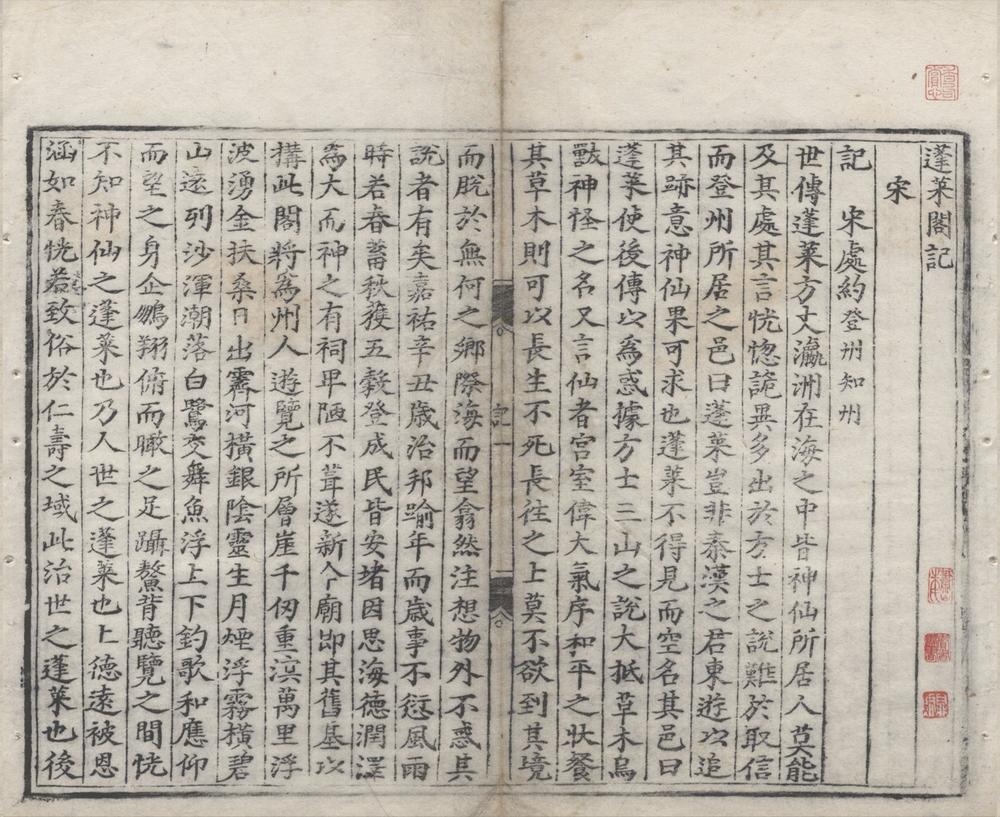 蓬萊閣記
宋
記　宋處約登州知州
世傳蓬萊方丈瀛洲在海之中皆神仙所居人莫能
及其處其言恍惚詭異多出於方士之說難於取信
而登州所居之邑曰蓬萊豈非秦漢之君東遊以追
其跡意神仙果可求也蓬萊不得見而空名其邑曰
蓬萊使後傳以為惑據方士三山之說大抵草木鳥
獸神怪之名又言仙者宮室偉大氣序和平之狀餐
其草木則可以長生不死長往之上莫不欲到其境
記　一
而脫於無何之鄉際海而望翕然注想物外不惑其
說者有矣嘉祐辛丑歲治邦踰年而歲事不愆風雨
時若春蓄秋穫五穀登成民皆安堵因思海德潤澤
為大而神之有祠卑陋不葺遂新今廟即其舊基以
搆此閣將爲州人遊覽之所層崖千仞重溟萬里浮
波湧金扶桑日出霽河橫銀陰靈生月煙浮霧橫碧
山遠列沙渾潮落白鷺交舞魚浮上下釣歌和應仰
而望之身企鵬翔俯而瞰之足躡鰲背聽覽之間恍
不知神仙之蓬萊也乃人世之蓬萊也上德遠被恩
涵如春恍若致俗於仁壽之域此治世之蓬萊也後